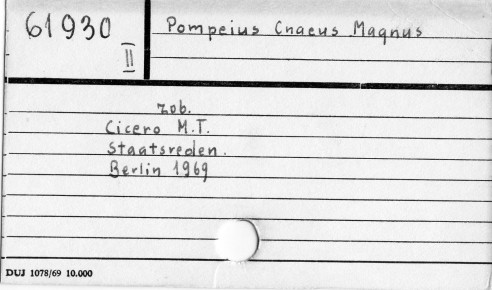 61930
II
Pompeius Cnaeus Magnus
zob.
Cicero M.T.
Staatsreden.
Berlin 1969
DUJ 1078/69 10.000